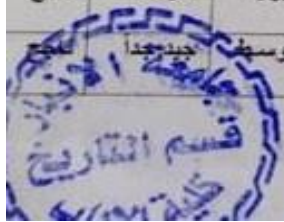 وسط جيد جداً ناجح
جامعة الانبار
قسم التاريخ
كلية